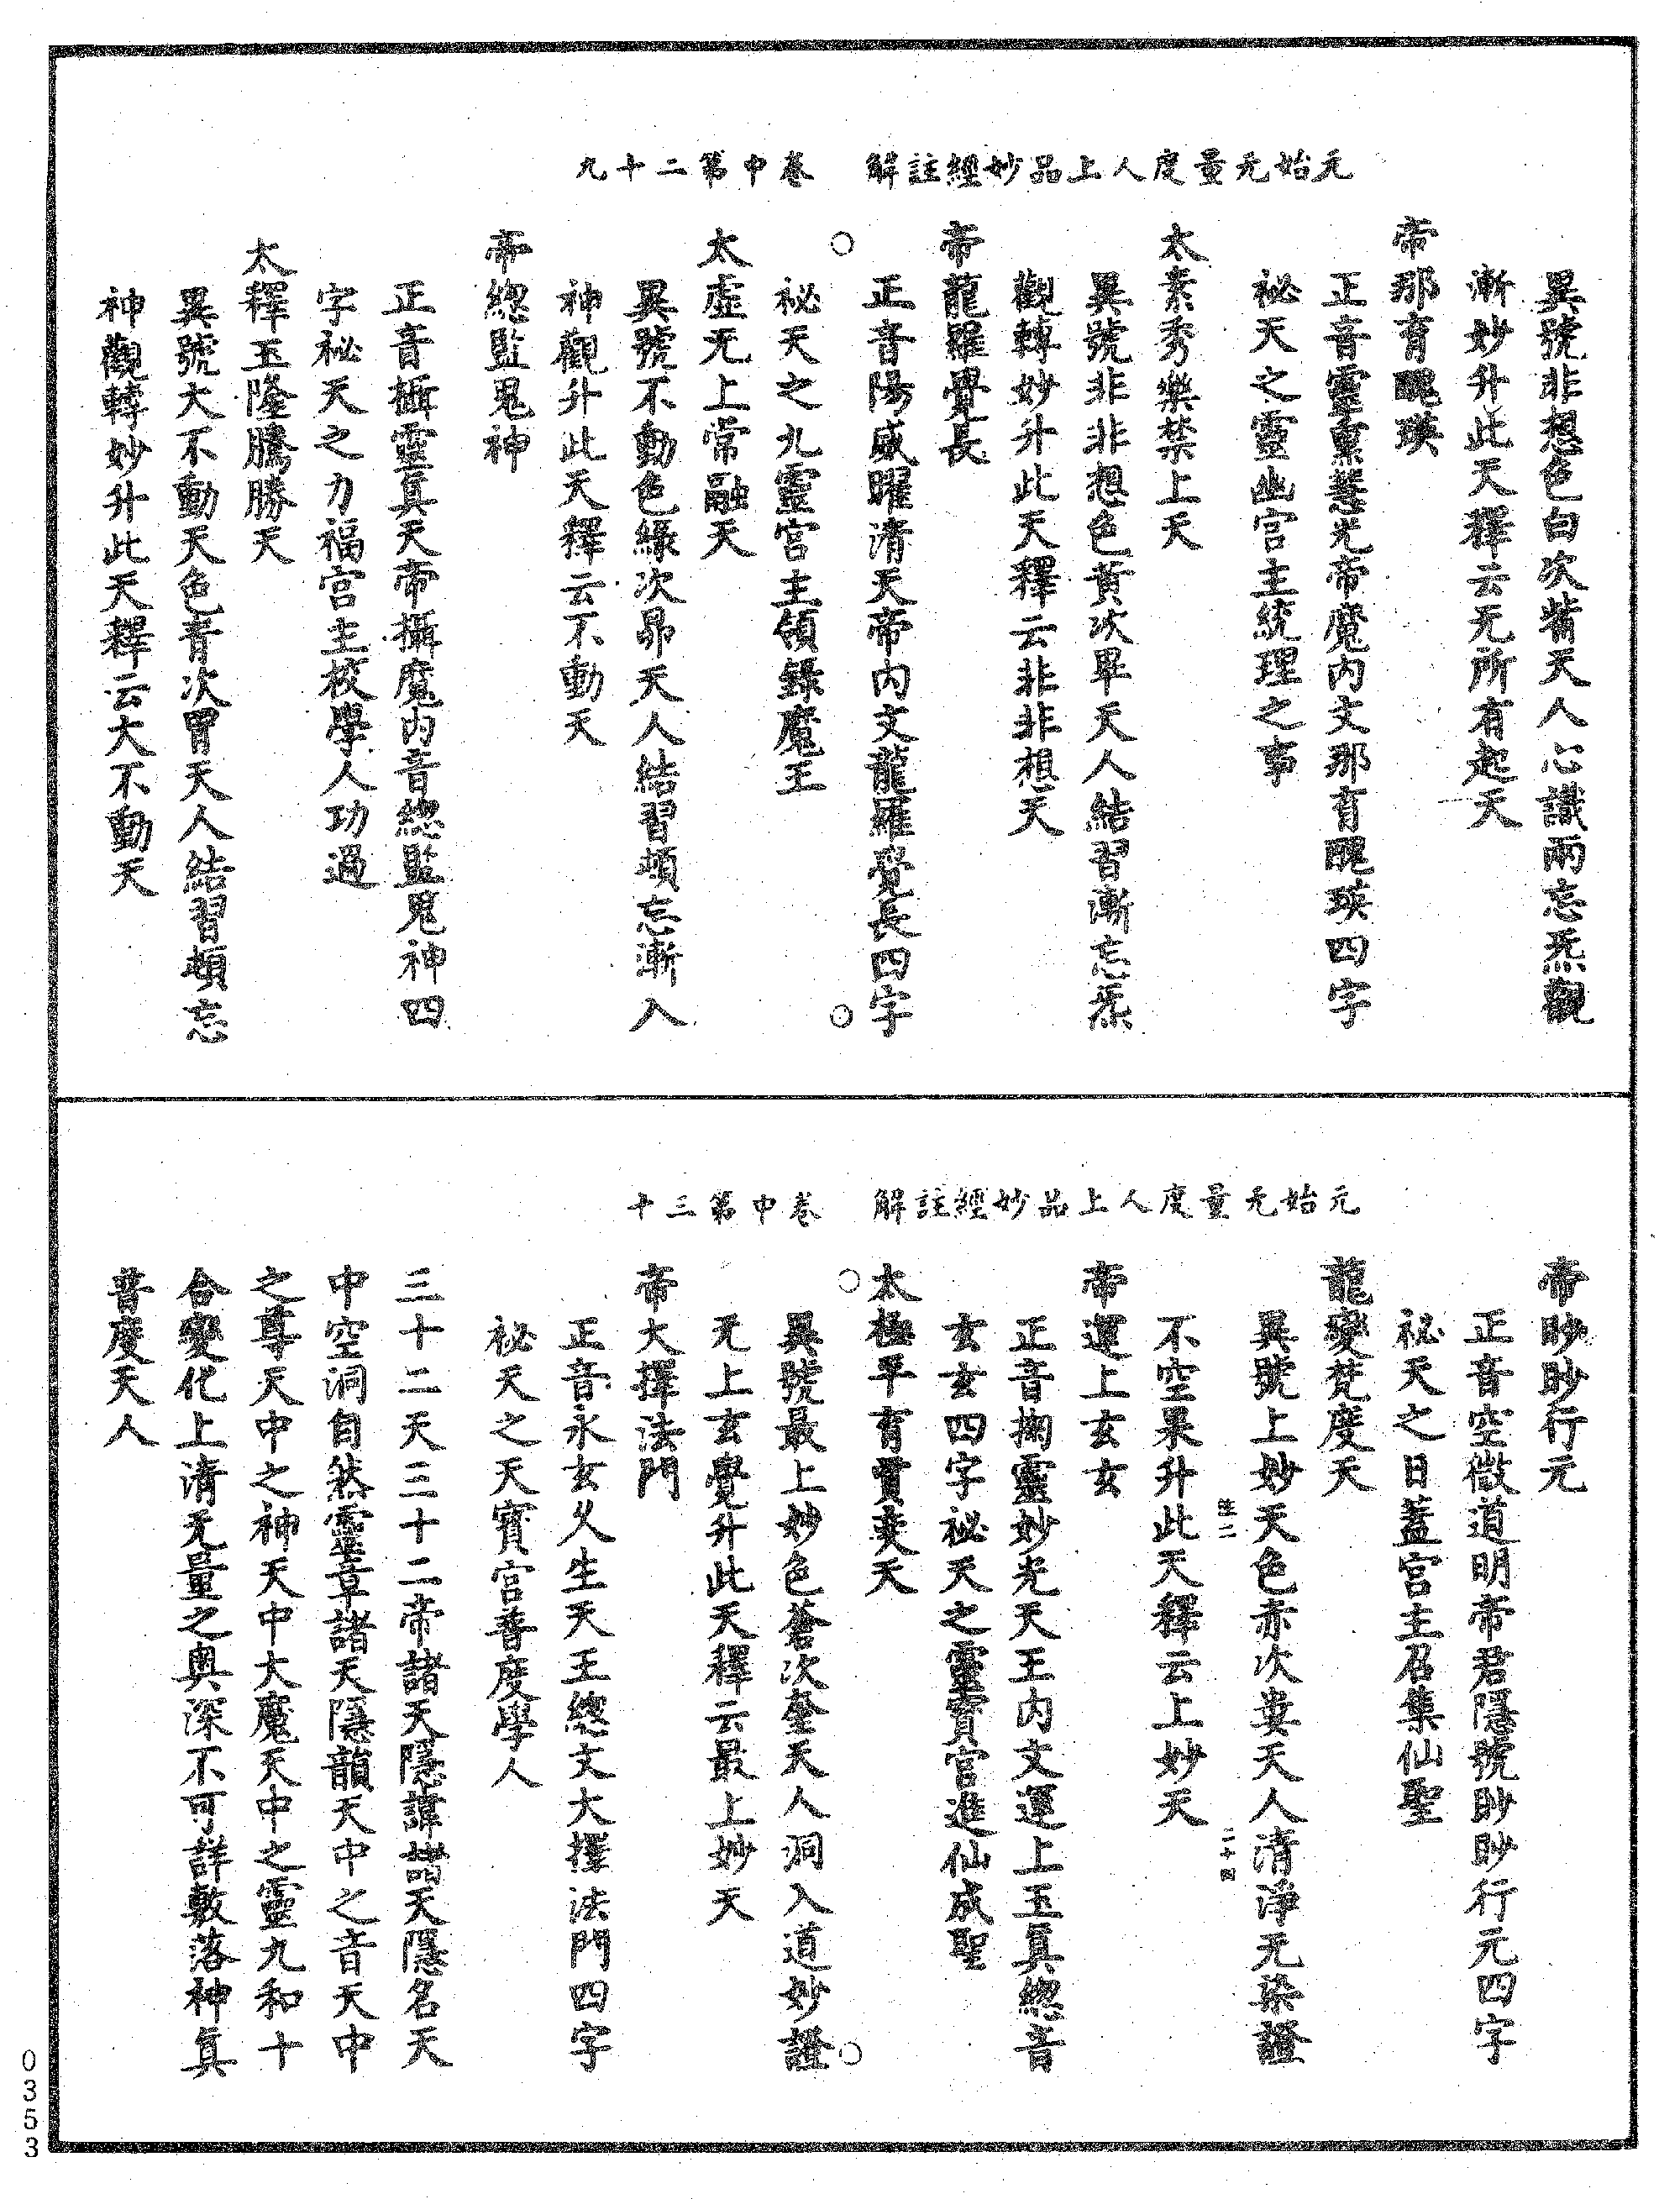 元始无量度人上品妙經註解　卷中第二十九
異號非想色白次觜天人心識兩忘炁觀
漸妙升此天釋云无所有起天
帝那育醜瑛
正音靈熏慧光帝魔内文那育醜瑛四字
祕天之靈幽宫主統理之事
太素秀樂禁上天
異號非非想色黄次畢天人結習漸忘炁
觀轉妙升此天釋云非非想天
帝龍羅覺長
正音陽威曜清天帝内文龍羅覺長四字
祕天之九靈宫主領錄魔王
太虛无上常融天
異號不動色綠次昴天人結習頓忘漸入
神觀升此天釋云不動天
帝總監鬼神
正音攝靈真天帝攝魔内音總監鬼神四
字祕天之力福宫主校學人功過
太釋玉隆騰勝天
異號大不動天色青次胃天人結習頓忘
神觀轉妙升此天釋云大不動天
元始无量度人上品妙經註解　卷中第三十
帝眇眇行元
正音空微道明帝君隱號眇眇行元四字
祕天之日蓋宫主召集仙聖
龍變梵度天
異號上妙天色赤次婁天人清淨无染證
二十四
不空果升此天釋云上妙天
帝運上玄玄
正音掬靈妙光天王内文運上玉真總音
玄玄四字祕天之靈寶官進仙成聖
太極平育賈奕天
異號最上妙色蒼次奎天人洞入道妙證
无上玄覺升此天釋云最上妙天
帝大擇法門
正音永玄久生天王總文大擇法門四字
祕天之天寶宫普度學人
三十二天三十二帝諸天隱諱諸天隱名天
中空洞自然靈章諸天隱韻天中之音天中
之尊天中之神天中大魔天中之靈九和十
合變化上清无量之奥深不可詳敷落神真
普度天人
0353